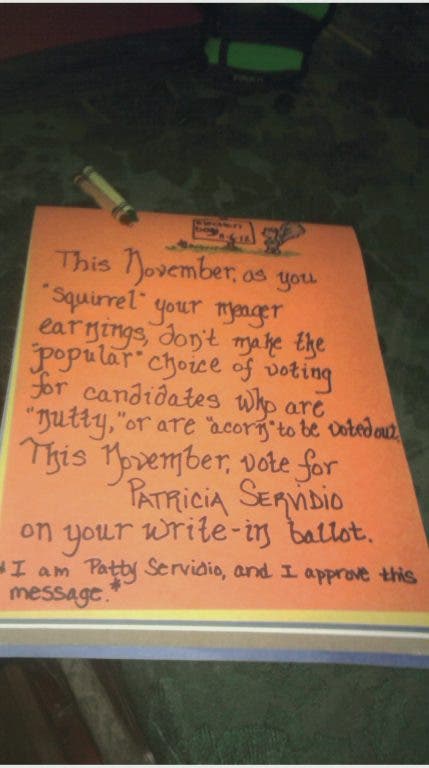 Election
Day
11-6-12
This November, as you
"squirrel" your meager
earnings, don't make the
"popular" choice of voting
for candidates who are
"nutty," or are "acorn" to be voted out.
This November, vote for
PATRICIA SERVIDIO
on your write-in ballot.
*I am Patty Servidio, and I approve this
message.*